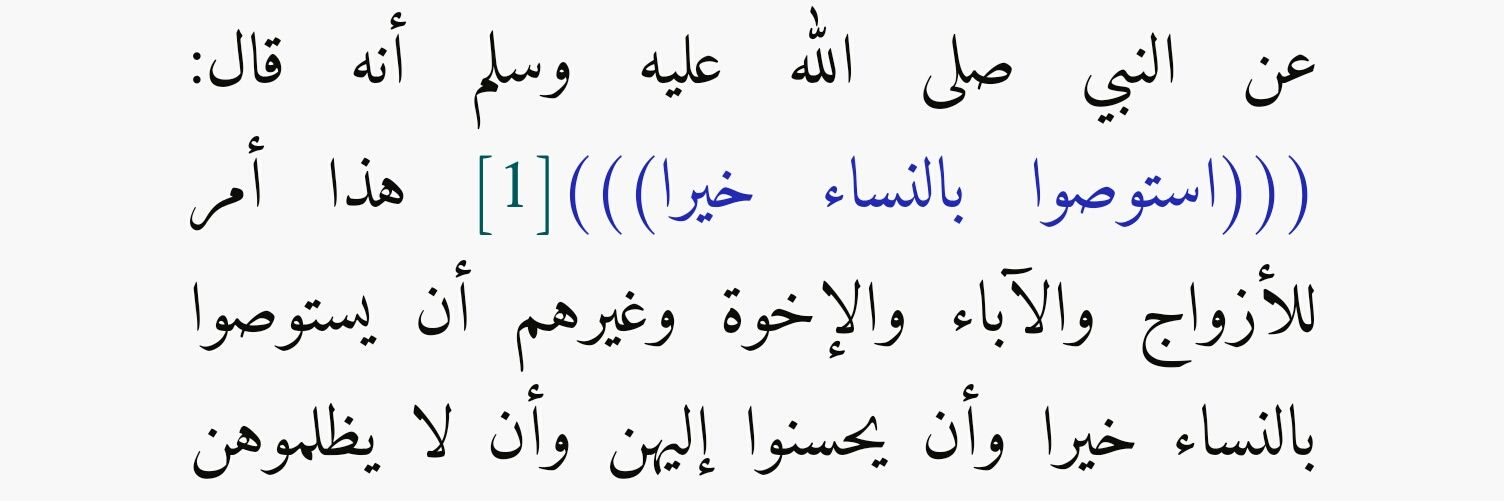 عن النبي صلى الله عليه وسلم أنه قال:
(((استوصوا بالنساء خيرا)))[1] هذا أمر
للأزواج والآباء والإخوة وغيرهم أن يستوصوا
بالنساء خيرا وأن يحسنوا إليهن وأن لا يظلموهن